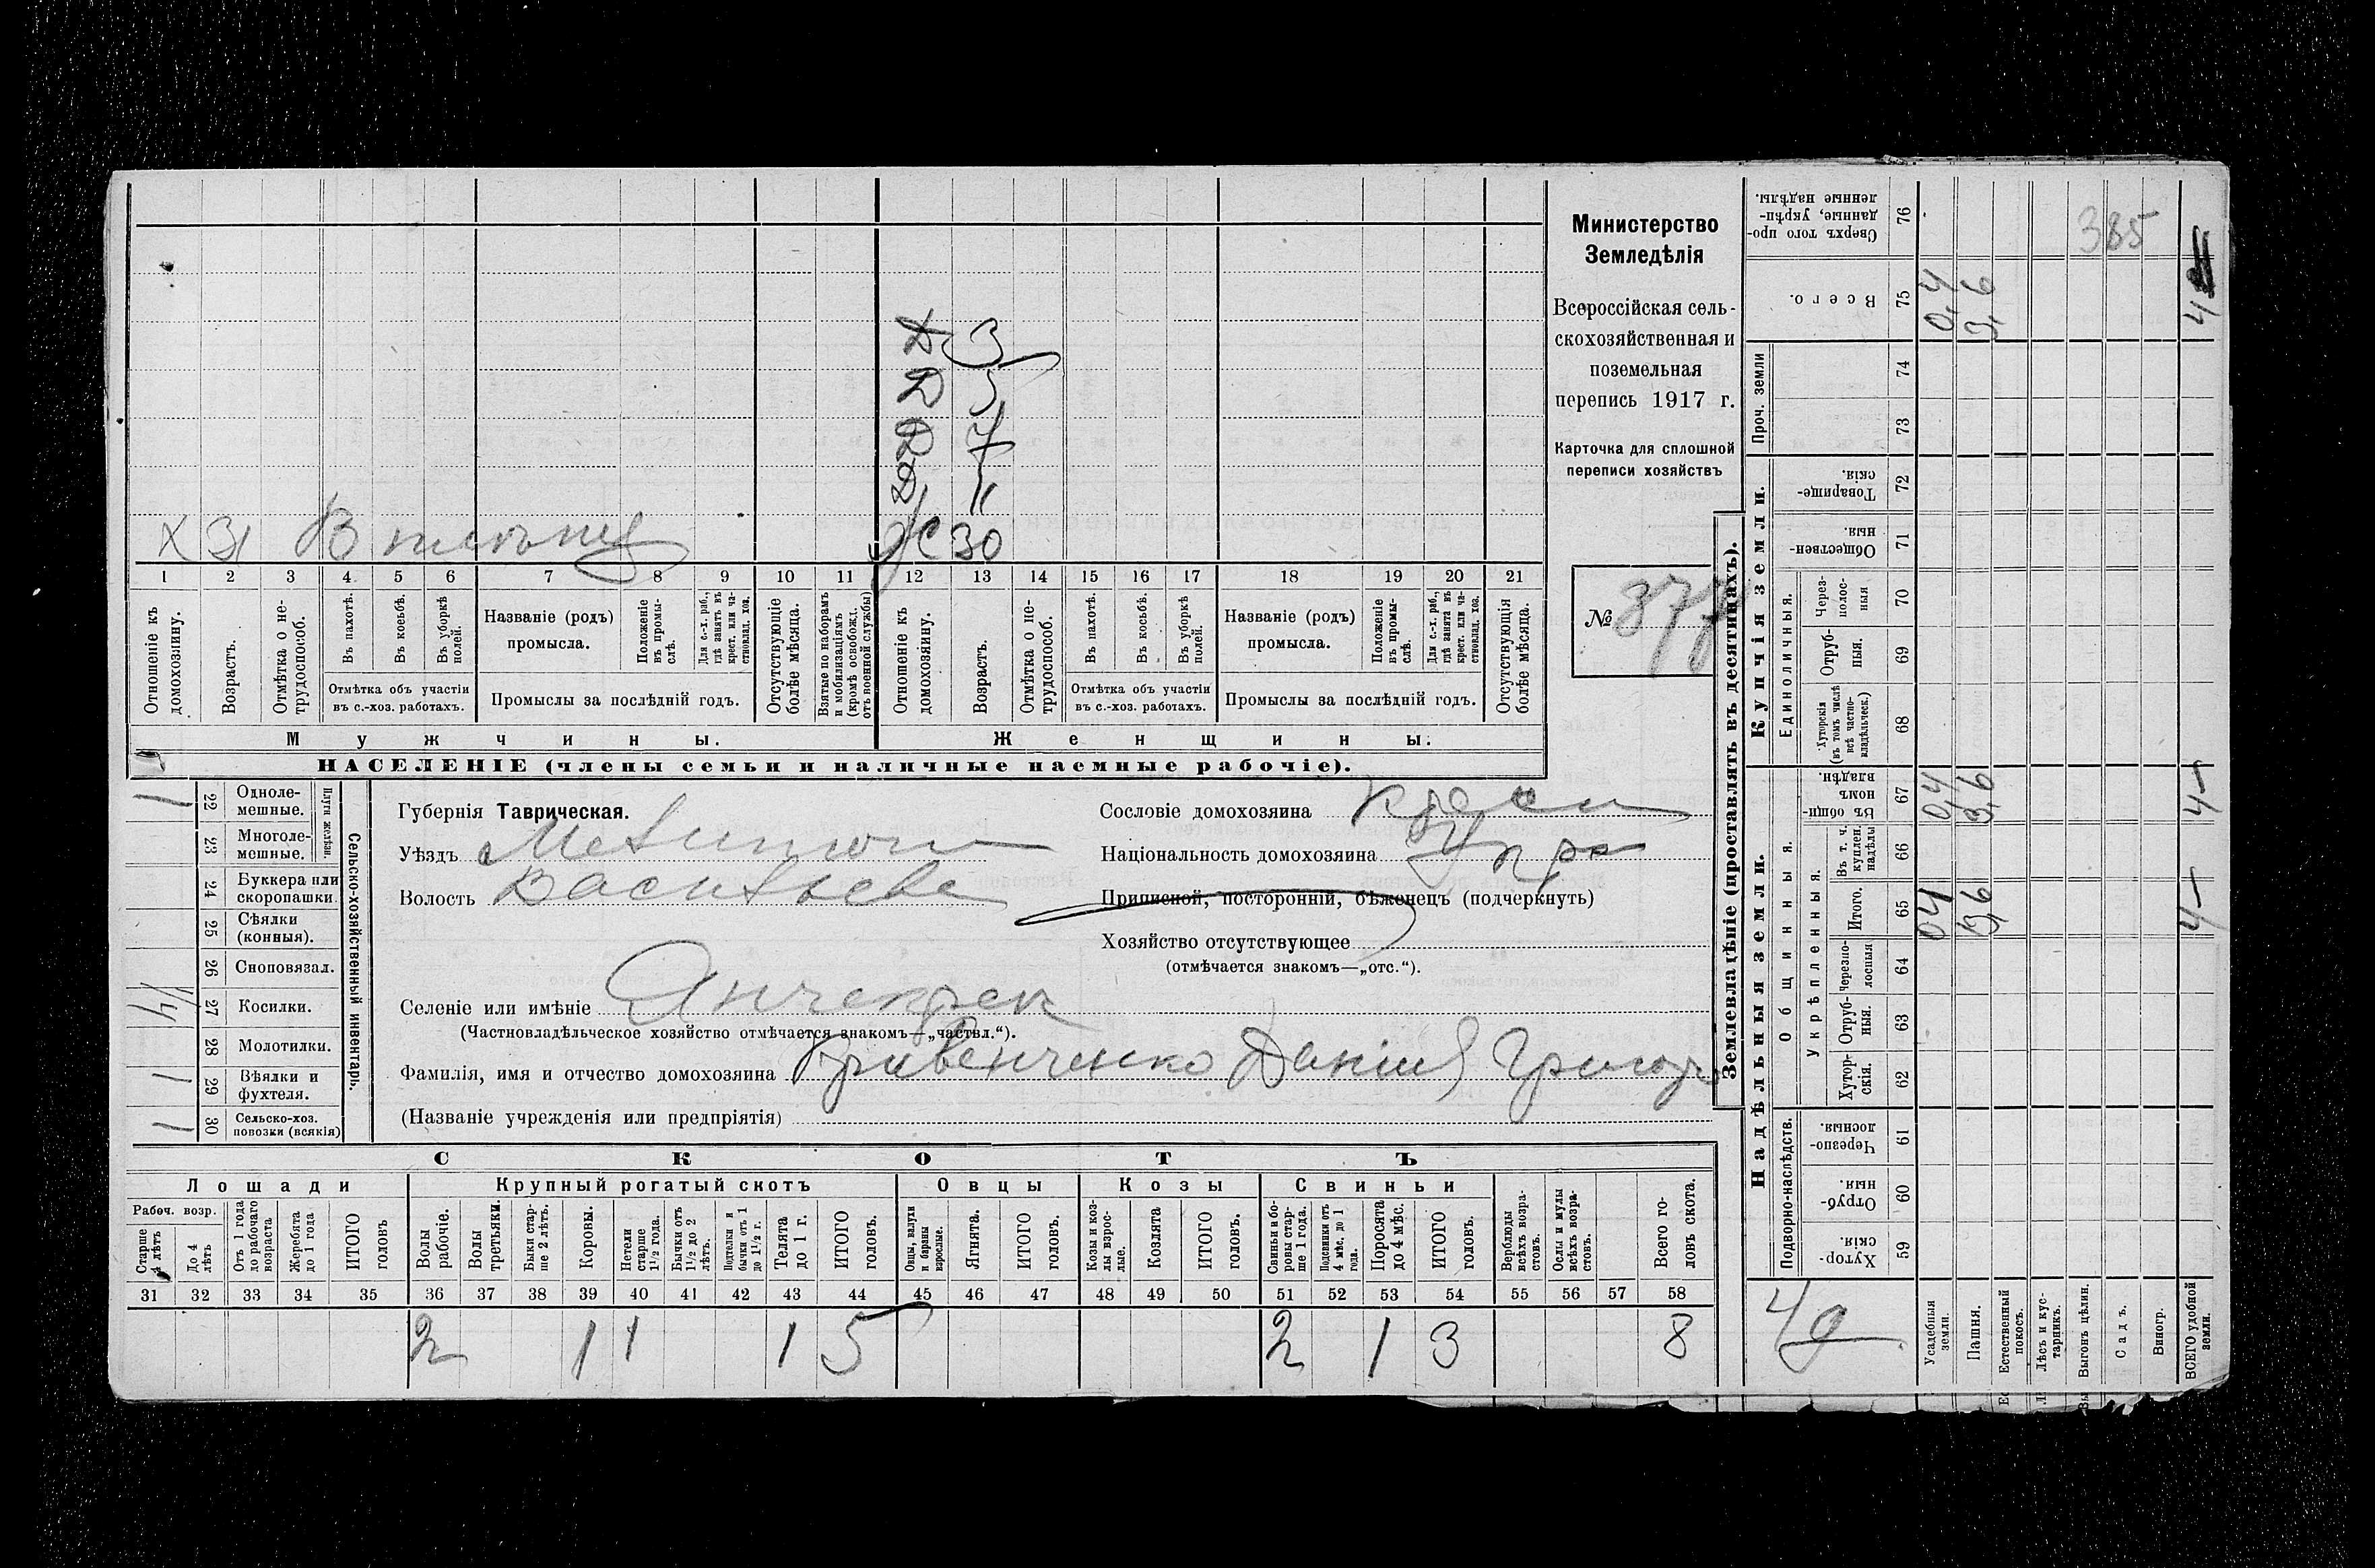 Министерство
Земледѣлія
Всероссійская сель-
скохозяйственная и
поземельная
перепись 1917 г.
Карточка для сплошной
переписи хозяйствъ
№ 377
Д 3
Д 5
Д 7
Д 11
Х 31 В плѣну Ж 30
1 2 3 4 5 6 7 8 9 10 11 12 13 14 15 16 17 18 19 20 21
Отношеніе къ домохозяину.
Возрастъ.
Отмѣтка о не-трудоспособ.
Въ пахотѣ.
Въ косьбѣ.
Въ уборкѣ полей.
Отмѣтка объ участіи
въ с.-хоз. работахъ.
Названіе (родъ)
промысла.
Положеніе въ промы-слѣ.
Для с.-х. раб., гдѣ занятъ въ крест. или ча-стновлад. хоз.
Промыслы за послѣдній годъ.
Отсутствующіе болѣе мѣсяца.
Взятые по наборамъ и мобилизаціямъ (кромѣ освобожд. отъ военной службы)
Отношеніе къ домохозяину.
Возрастъ.
Отмѣтка о не-трудоспособ.
Въ пахотѣ.
Въ косьбѣ.
Въ уборкѣ полей.
Отмѣтка объ участіи
въ с.-хоз. работахъ.
Названіе (родъ)
промысла.
Положеніе въ промы-слѣ.
Для с.-х. раб., гдѣ занята въ крест. или ча-стновлад. хоз.
Промыслы за послѣдній годъ.
Отсутствующія болѣе мѣсяца.
Мужчины. Женщины.
НАСЕЛЕНІЕ (члены семьи и наличные наемные рабочіе).
Сельско-хозяйственный инвентарь.
Плуги желѣзн.
22 Одноле-мешные. 1
23 Многоле-мешные.
24 Буккера или скоропашки.
25 Сѣялки (конныя).
26 Сноповязал.
27 Косилки. 1/4
28 Молотилки.
29 Вѣялки и фухтеля. 1
30 Сельско-хоз. повозки (всякія) 1
Губернія Таврическая.
Уѣздъ Мелитопол
Волость Васильев
Селеніе или имѣніе Янчекрак
(Частновладѣльческое хозяйство отмѣчается знакомъ—„частвл.“).
Фамилія, имя и отчество домохозяина Гривенченко Даніил Григор
(Названіе учрежденія или предпріятія)
Сословіе домохозяина
Національность домохозяина Укра
Приписной, посторонній, бѣженецъ (подчеркнуть)
Хозяйство отсутствующее
(отмѣчается знакомъ—„отс.“).
СКОТЪ
Лошади Крупный рогатый скотъ Овцы Козы Свиньи
Рабоч. возр.
Старше 4 лѣтъ
До 4 лѣтъ
Отъ 1 года до рабочаго возраста
Жеребята до 1 года
ИТОГО головъ
Волы рабочіе.
Волы третьяки.
Быки стар-ше 2 лѣтъ.
Коровы.
Нетели старше 1½ года.
Бычки отъ 1½ до 2 лѣтъ.
Подтелки и бычки отъ 1 до 1½ г.
Телята до 1 г.
ИТОГО головъ.
Овцы, валухи и бараны взрослые.
Ягнята.
ИТОГО головъ.
Козы и коз-лы взрос-лые.
Козлята
ИТОГО головъ.
Свиньи и бо-ровы стар-ше 1 года.
Подсвинки отъ 4 мѣс. до 1 года.
Поросята до 4 мѣс.
ИТОГО головъ.
Верблюды всѣхъ возра-стовъ.
Ослы и мулы всѣхъ возра-стовъ.
Всего го-ловъ скота.
31 32 33 34 35 36 37 38 39 40 41 42 43 44 45 46 47 48 49 50 51 52 53 54 55 56 57 58
2 1 1 1 5 2 1 3 8
Землевладѣніе (проставлять въ десятинахъ).
Надѣльныя земли. Купчія земли. Проч. земли
Подворно-наслѣдств.
Общинныя.
Укрѣпленныя.
Единоличныя.
Хутор-скія. 59
Отруб-ныя. 60
Черезпо-лосныя. 61
Хутор-скія. 62
Отруб-ныя. 63
Черезпо-лосныя 64
Итого. 65 0,4 3,6 4-
Въ т. ч. куплен. надѣлы 66
Въ общи-номъ владѣн. 67 0,4 3,6 4-
Хуторскія (въ томъ числѣ всѣ частно-владѣльческ.) 68
Отруб-ныя. 69
Через-полос-ныя 70
Обществен-ныя 71
Товарище-скія. 72
73
74
Всего. 75 0,4 3,6 4
Сверхъ того про-данные, укрѣп-ленные надѣлы. 76
385
4 д
Усадебныя земли.
Пашня.
Естественный покосъ.
Лѣсъ и кус-тарникъ.
Выгонъ цѣлин.
Садъ.
Виногр.
ВСЕГО удобной земли.